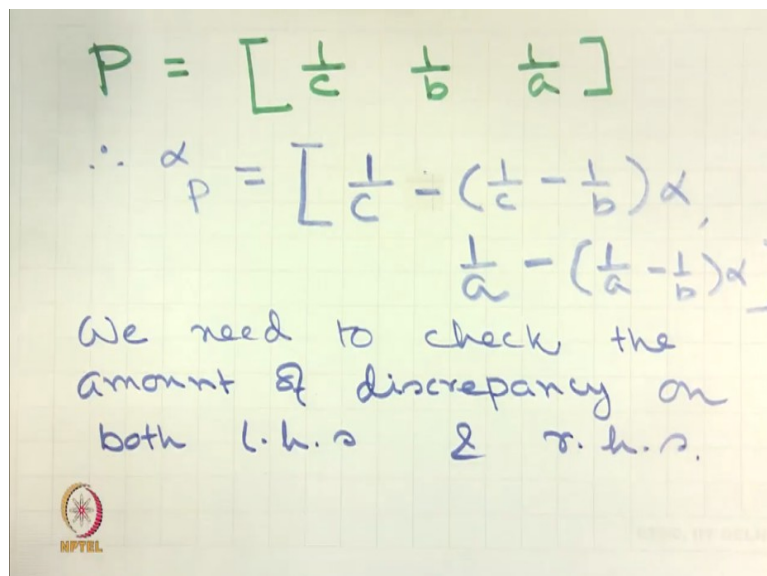 P = [ 1/c 1/b 1/a ]
∴ αP = [ 1/c - (1/c - 1/b)α,
1/a - (1/a - 1/b)α ]
We need to check the
amount of discrepancy on
both l.h.s & r.h.s.
NPTEL